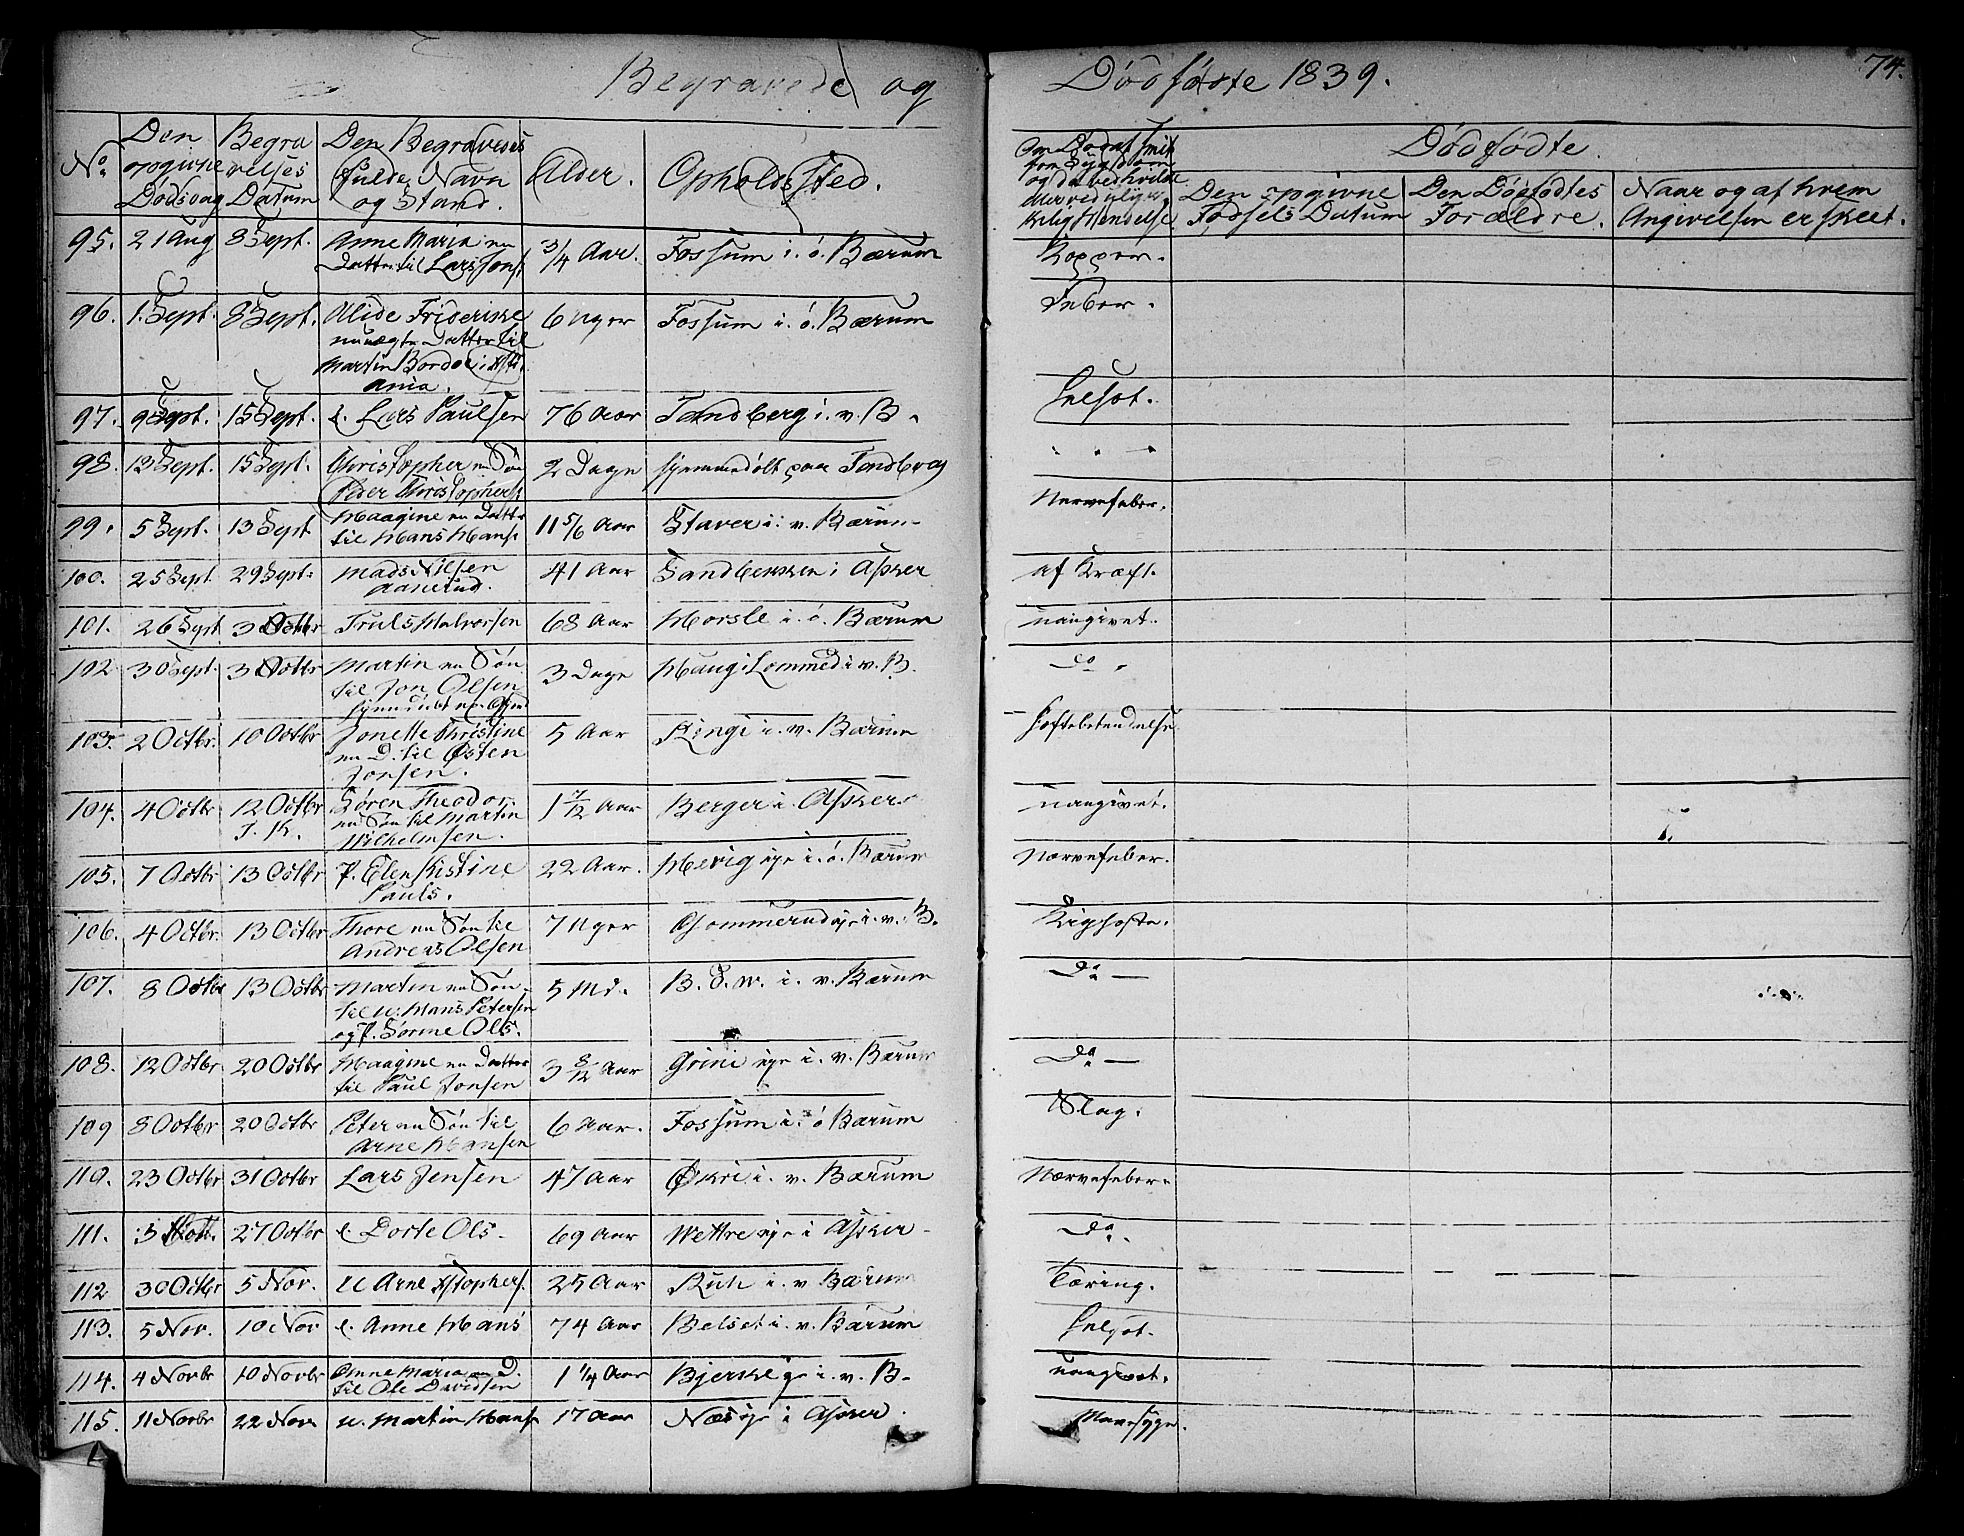 Begravede og Dödfödte 1839. 74.
No. Den opgivne Dødsdag Begravelses Datum Den Begravedes fulde Navn og Stand. Alder. Opholds Sted.
Dødfödte.
Den opgivne Fødsels Datum Den Dødfødtes Forældre. Naar og af hvem Angivelsen er skeet.
95. 21 Aug 8 Sept. Anne Maria en Datter til Lars Jons. 3/4 Aar. Fossum i ö. Bærum Kopper.
96. 1. Sept. 8 Sept. Alide Friderikke uægte Datter til Martin 6 Uger Fossum i. ö. Bærum Feber.
97. 9 Sept. 15 Sept. e. Lars Paulsen 76 Aar Tandberg i. v. B. Helsot.
98. 13 Sept. 15 Sept. Christopher en Sön Peder Christophers. 2 Dage hjemmedöbt paa Tandberg " " "
99. 5 Sept. 13 Sept. Haagine en Datter til Hans Hans. 11 5/6 Aar Staver i. v. Bærum Nervefeber.
100. 25 Sept. 29 Sept. Mads Nilsen Aanerud. 41 Aar Sandbekken i Asker af Kræft.
101. 26 Sept 3 Octbr Truls Halvorsen 68 Aar Horsle i. ö. Bærum uangivet.
102 30 Sept. 3 Octbr Martin en Sön til Jon Olsen 3 Dage Haug i Lommed i v. B. do
103. 2 Octbr. 10 Octbr Jonette Christine en D. til Østen Jonsen. 5 Aar Ringi i. v. Bærum Hoftebetændelse
104. 4 Octbr 12 Octbr J. K. Sören Theodor. en Sön til Martin Wilhelmsen. 1 7/12 Aar Berger i. Asker uangivet.
105. 7 Octbr 13 Octbr P. Elen Kistine Pauls. 22 Aar. Hevig eje i. ö. Bærum Nervefeber.
106. 4 Octbr. 13 Octbr Thore en Sön til Andreas Olsen 7 Uger Gommerud eje i. v. B. Kighoste.
107. 8 Octbr 13 Octbr Martin en Sön til u. Hans Petersen og P. Sörine Ols. 5 Md. B. i. v. Bærum Do
108. 12 Octbr 20 Octbr Haagine en Datter til Paul Jonsen 3 8/12 Aar Grini eje i. v. Bærum Do
109 8 Octbr 20 Octbr Peter en Sön til Arne Hansen 6 Aar. Fossum i. ö Bærum Slag.
110. 23 Octbr 31 Octbr Lars Jensen 47 Aar Økri i. v. Bærum Nervefeber.
111. 27 Octbr e Dorte Ols. 69 Aar Wettre eje i Asker Do.
112 30 Octbr 5 Nov. U Arne Xstophers. 25 Aar Rud i. v Bærum Tæring.
113. 5 Nov. 10 Nov e. Anne Hans 74 Aar Belset i. v. Bærum Helsot.
114. 4 Novbr 10 Novbr Anne Maria en D. til Ole Davidsen 1 1/4 Aar Bjerke eje i. v. B. uangivet.
115. 11 Novbr 22 Nov u. Martin Hans 17 Aar Næs eje i Asker. Mavesyge.